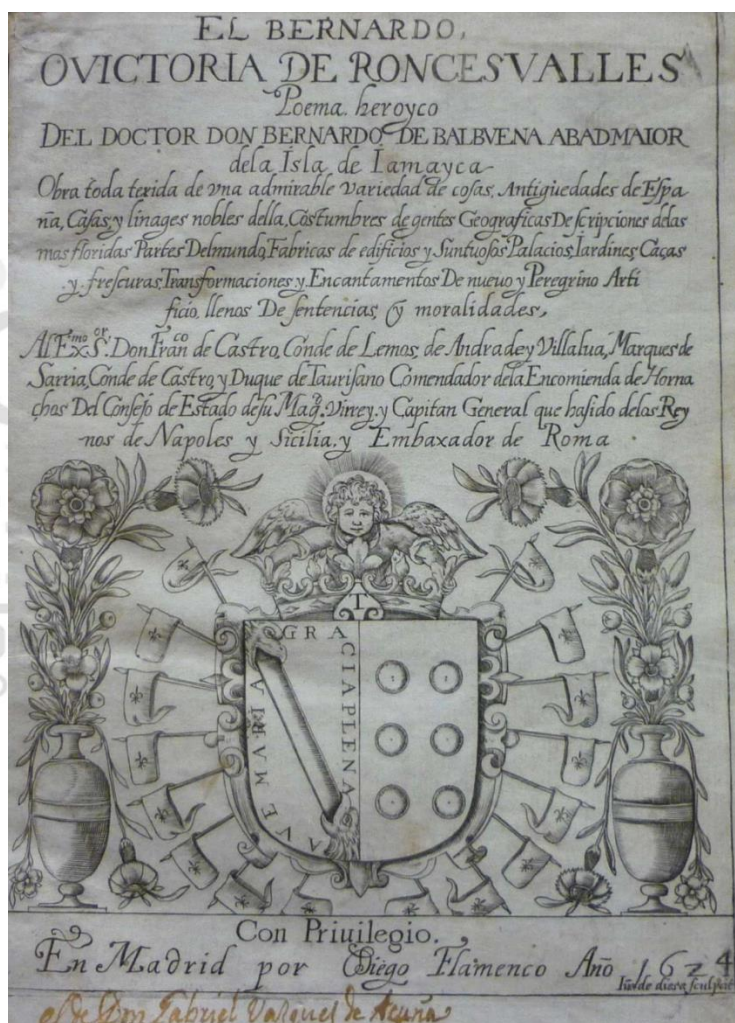 EL BERNARDO,
O VICTORIA DE RONCESVALLES
Poema heroyco
DEL DOCTOR DON BERNARDO DE BALBVENA ABAD MAIOR
de la Isla de Iamayca
Obra toda texida de vna admirable variedad de cosas, Antigüedades de Espa
ña, Casas, y linages nobles della, Costumbres de gentes Geograficas Descripciones delas
mas floridas Partes Delmundo, Fabricas de edificios y Suntuosos Palacios, Iardines Caças
y frescuras, Transformaciones y Encantamentos De nueuo y Peregrino Arti
ficio, llenos De sentencias, y moralidades,
Al Exmo Sor. Don Franco de Castro, Conde de Lemos, de Andrade y Villalua, Marques de
Sarria, Conde de Castro, y Duque de Taurisano Comendador dela Encomienda de Horna
chos Del Consejo de Estado de su Magd. Virrey, y Capitan General que ha sido delos Rey
nos de Napoles y Sicilia, y Embaxador de Roma
T
AVE MARIA
GRA
CIA PLENA
Con Priuilegio.
En Madrid por Diego Flamenco Año 1624
Iuo de diera sculpsit
Don Gabriel Vazquez de Acuña